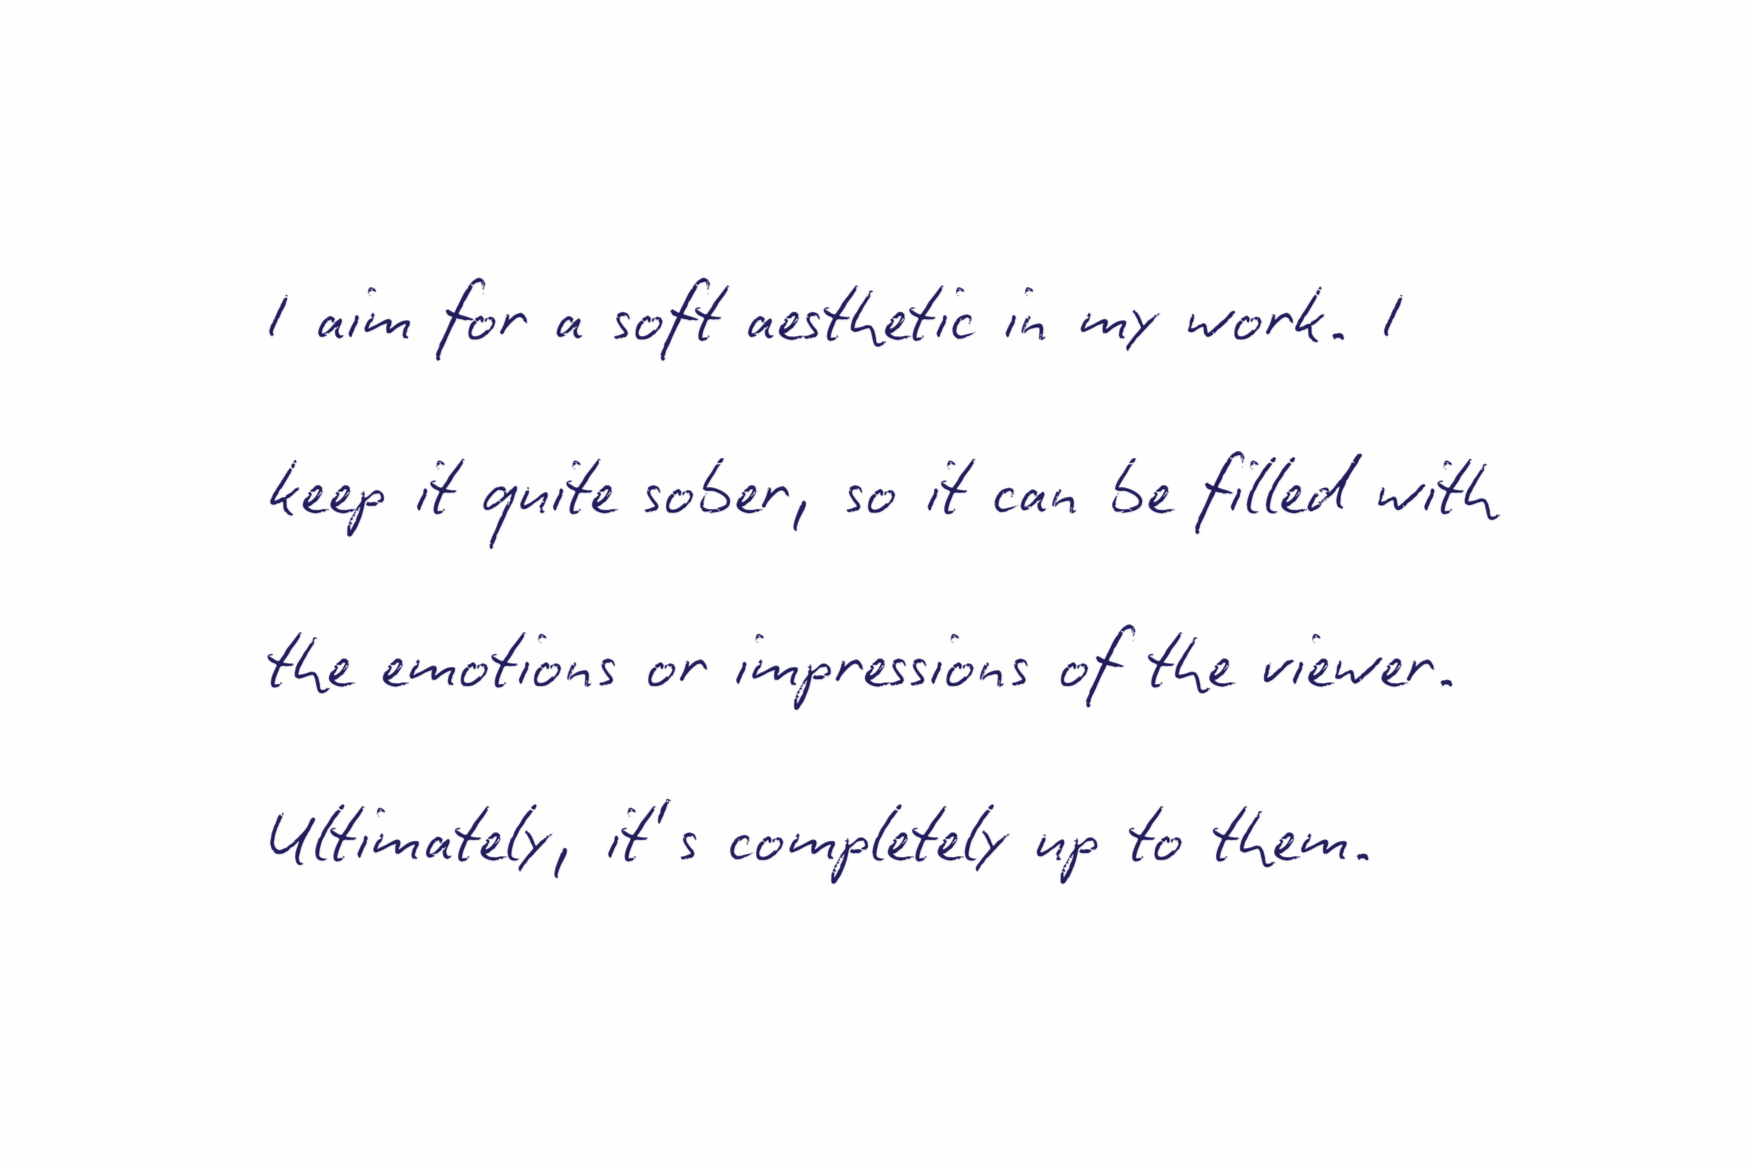 I aim for a soft aesthetic in my work. I
keep it quite sober, so it can be filled with
the emotions or impressions of the viewer.
Ultimately, it's completely up to them.